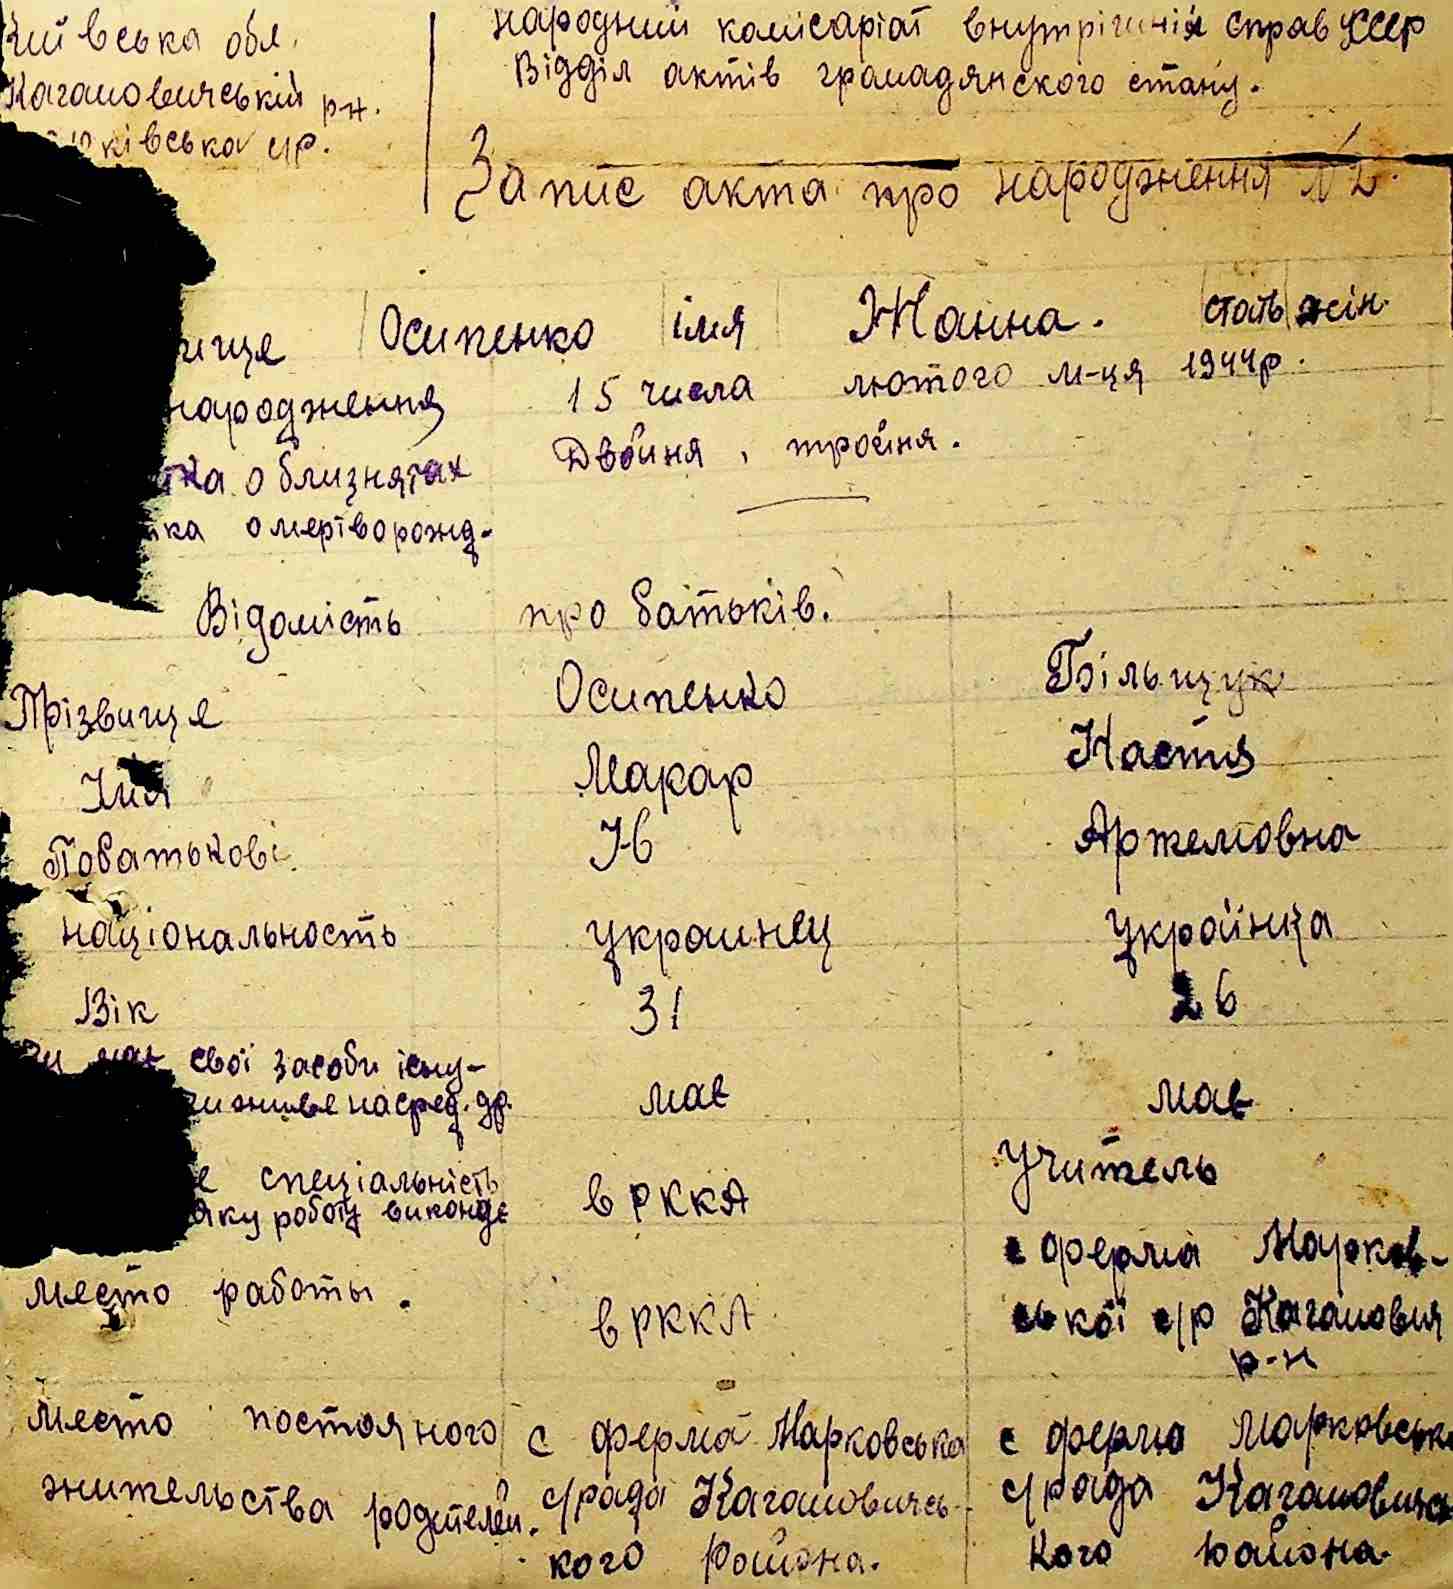 Київська обл.
Кагановичський р-н.
ківська с/р.
народний комісаріат внутрішнія справ УССР
Відділ актів громадянского стану.
Запис акта про народження №2.
ище Осипенко імя Жанна. стать жін.
народження 15 числа лютого м-ця 1944р.
тка о близнятах Двойня, тройня.
ка о мертворожд-
Відомість про батьків.
Прізвище Осипенко Більщук
Імя Макар Настя
Побатькові Ив Артемовна
національность украинец украінца
Вік 31 26
свої засоби існу-
чи живе на сред. др. має має
е спеціальність в РККА Учитель
яку роботу виконує
место работы. в РККА с ферма Марков-
ської с/р Каганович
р-н
место постояного с ферма Марковська с ферма Марковська
жительства родителей. с/рада Кагановичсь- с/рада Кагановичсь
кого района. кого района.